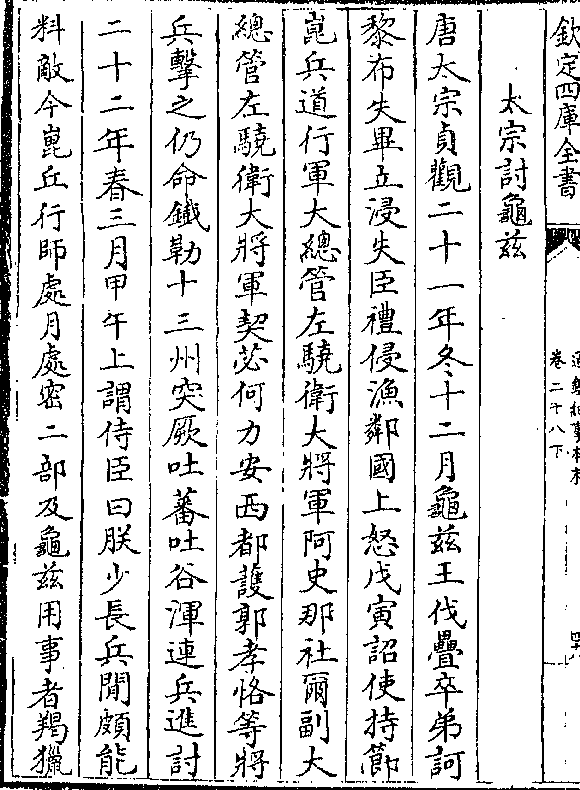 欽定四庫全書
卷二十八下
太宗討龜茲
唐太宗貞觀二十一年冬十二月龜茲王伐疊卒弟訶
黎布失畢立浸失臣禮侵漁鄰國上怒戊寅詔使持節
崑兵道行軍大總管左驍衛大將軍阿史那社爾副大
總管左驍衛大將軍契苾何力安西都護郭孝恪等將
兵擊之仍命鐵勒十三州突厥吐蕃吐谷渾連兵進討
二十二年春三月甲午上謂侍臣曰朕少長兵間頗能
料敵今崑丘行師處月處密二部及龜茲用事者羯獵